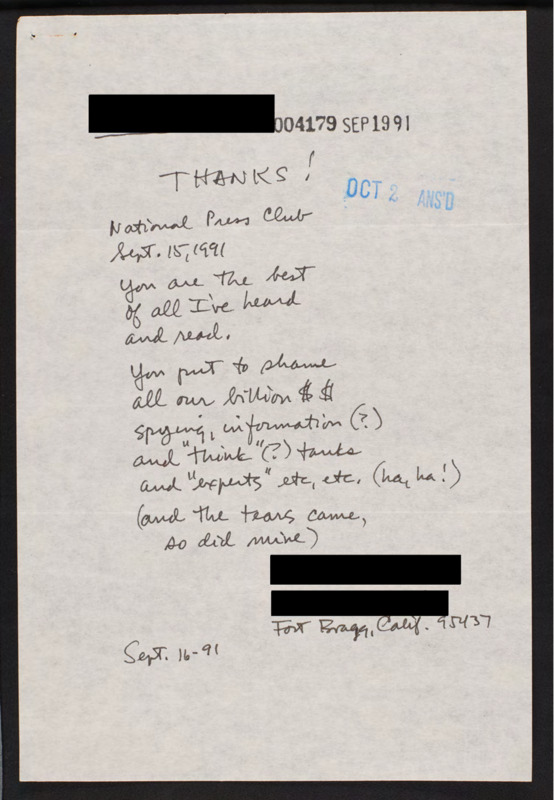 004179 SEP 1991
THANKS!
OCT 2 ANS'D
National Press Club
Sept. 15, 1991
You are the best
of all I've heard
and read.
You put to shame
all our billion $ $
spying, information (?)
and "think" (?) tanks
and "experts" etc, etc. (ha, ha!)
(and the tears came,
so did mine)
Fort Bragg, Calif. 95437
Sept. 16-91